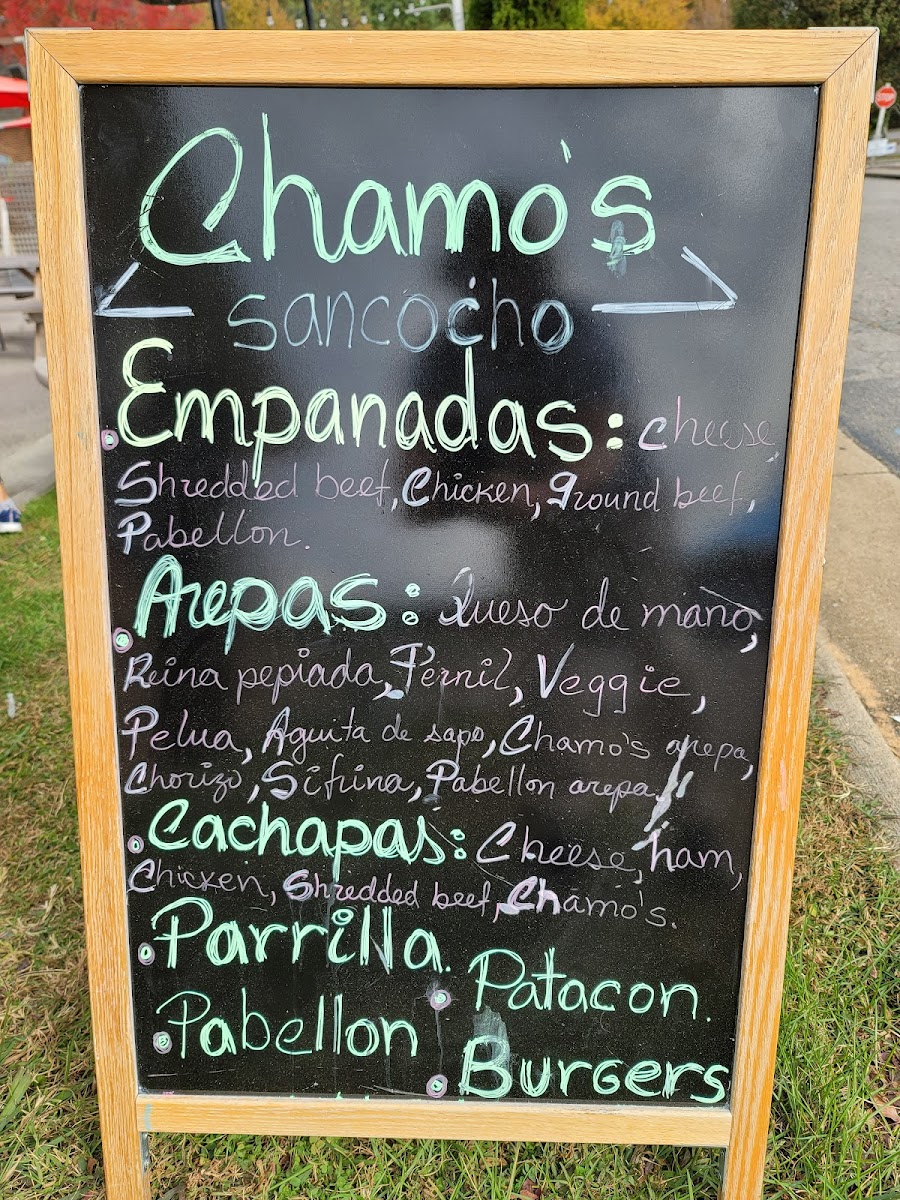 Chamo's
sancocho
Empanadas: cheese,
Shredded beef, Chicken, ground beef,
Pabellon.
Arepas: Queso de mano,
Reina pepiada, Pernil, Veggie,
Pelua, Aguita de sapo, Chamo's arepa,
Chorizo, Sifrina, Pabellon arepa.
Cachapas: Cheese, ham,
Chicken, Shredded beef, Chamo's.
Parrilla.
Patacon.
Pabellon
Burgers